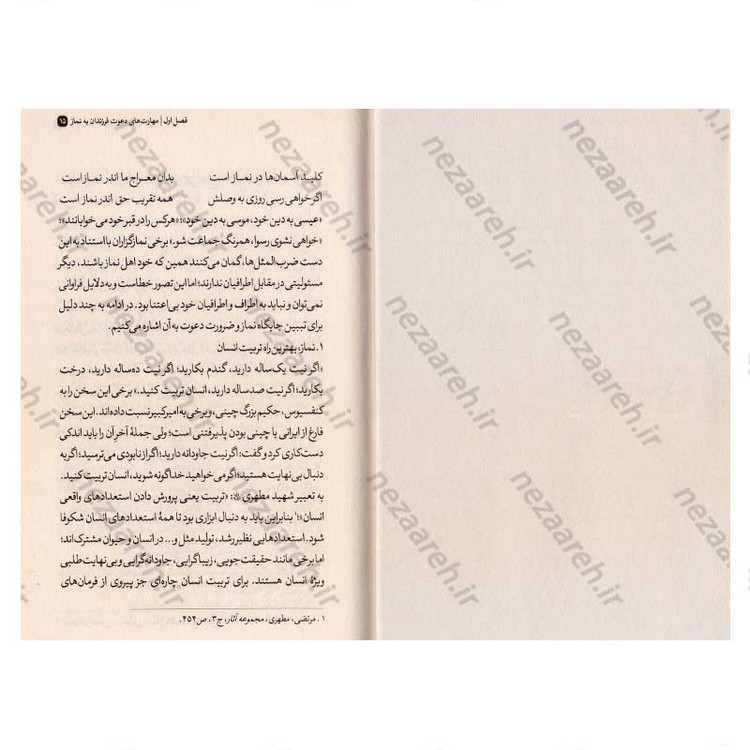 فصل اول | مهارت‌های دعوت فرزندان به نماز ۱۵
کلید آسمان‌ها در نماز است بدان معراج ما اندر نماز است
اگر خواهی رسی روزی به وصلش همه تقریب حق اندر نماز است
«عیسی به دین خود، موسی به دین خود»؛ «هرکس را در قبر خود می‌خوابانند»؛
«خواهی نشوی رسوا، همرنگ جماعت شو.» برخی نمازگزاران با استناد به این
دست ضرب‌المثل‌ها، گمان می‌کنند همین که خود اهل نماز باشند، دیگر
مسئولیتی در مقابل اطرافیان ندارند؛ اما این تصور خطاست و به دلایل فراوانی
نمی‌توان و نباید به اطراف و اطرافیان خود بی‌اعتنا بود. در ادامه به چند دلیل
برای تبیین جایگاه نماز و ضرورت دعوت به آن اشاره می‌کنیم.
۱. نماز، بهترین راه تربیت انسان
«اگر نیت یک‌ساله دارید، گندم بکارید؛ اگر نیت ده‌ساله دارید، درخت
بکارید؛ اگر نیت صدساله دارید، انسان تربیت کنید.» برخی این سخن را به
کنفسیوس، حکیم بزرگ چینی، و برخی به امیرکبیر نسبت داده‌اند. این سخن
فارغ از ایرانی یا چینی بودن پذیرفتنی است؛ ولی جملهٔ آخرِ آن را باید اندکی
دست‌کاری کرد و گفت: اگر نیت جاودانه دارید؛ اگر از نابودی می‌ترسید؛ اگر به
دنبال بی‌نهایت هستید؛ اگر می‌خواهید خداگونه شوید، انسان تربیت کنید.
به تعبیر شهید مطهری: «تربیت یعنی پرورش دادن استعدادهای واقعی
انسان»؛۱ بنابراین باید به دنبال ابزاری بود تا همهٔ استعدادهای انسان شکوفا
شود. استعدادهایی نظیر رشد، تولید مثل و... در انسان و حیوان مشترک‌اند؛
اما برخی مانند حقیقت‌جویی، زیباگرایی، جاودانه‌گرایی و بی‌نهایت‌طلبی
ویژهٔ انسان هستند. برای تربیت انسان چاره‌ای جز پیروی از فرمان‌های
۱. مرتضی، مطهری، مجموعه آثار، ج۳، ص۴۵۴.
nezaareh.ir
nezaareh.ir
nezaareh.ir
nezaareh.ir
nezaareh.ir
nezaareh.ir
nezaareh.ir
nezaareh.ir